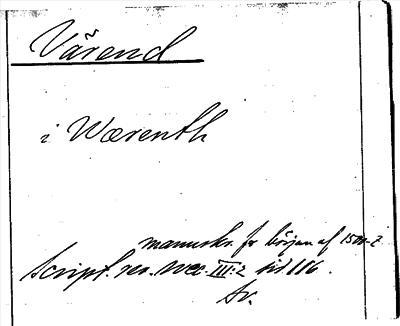 Värend
i Wærenth
manuskr. fr början af 1500-t
Script. rer. svec. III:2 sid 116.
Sv.